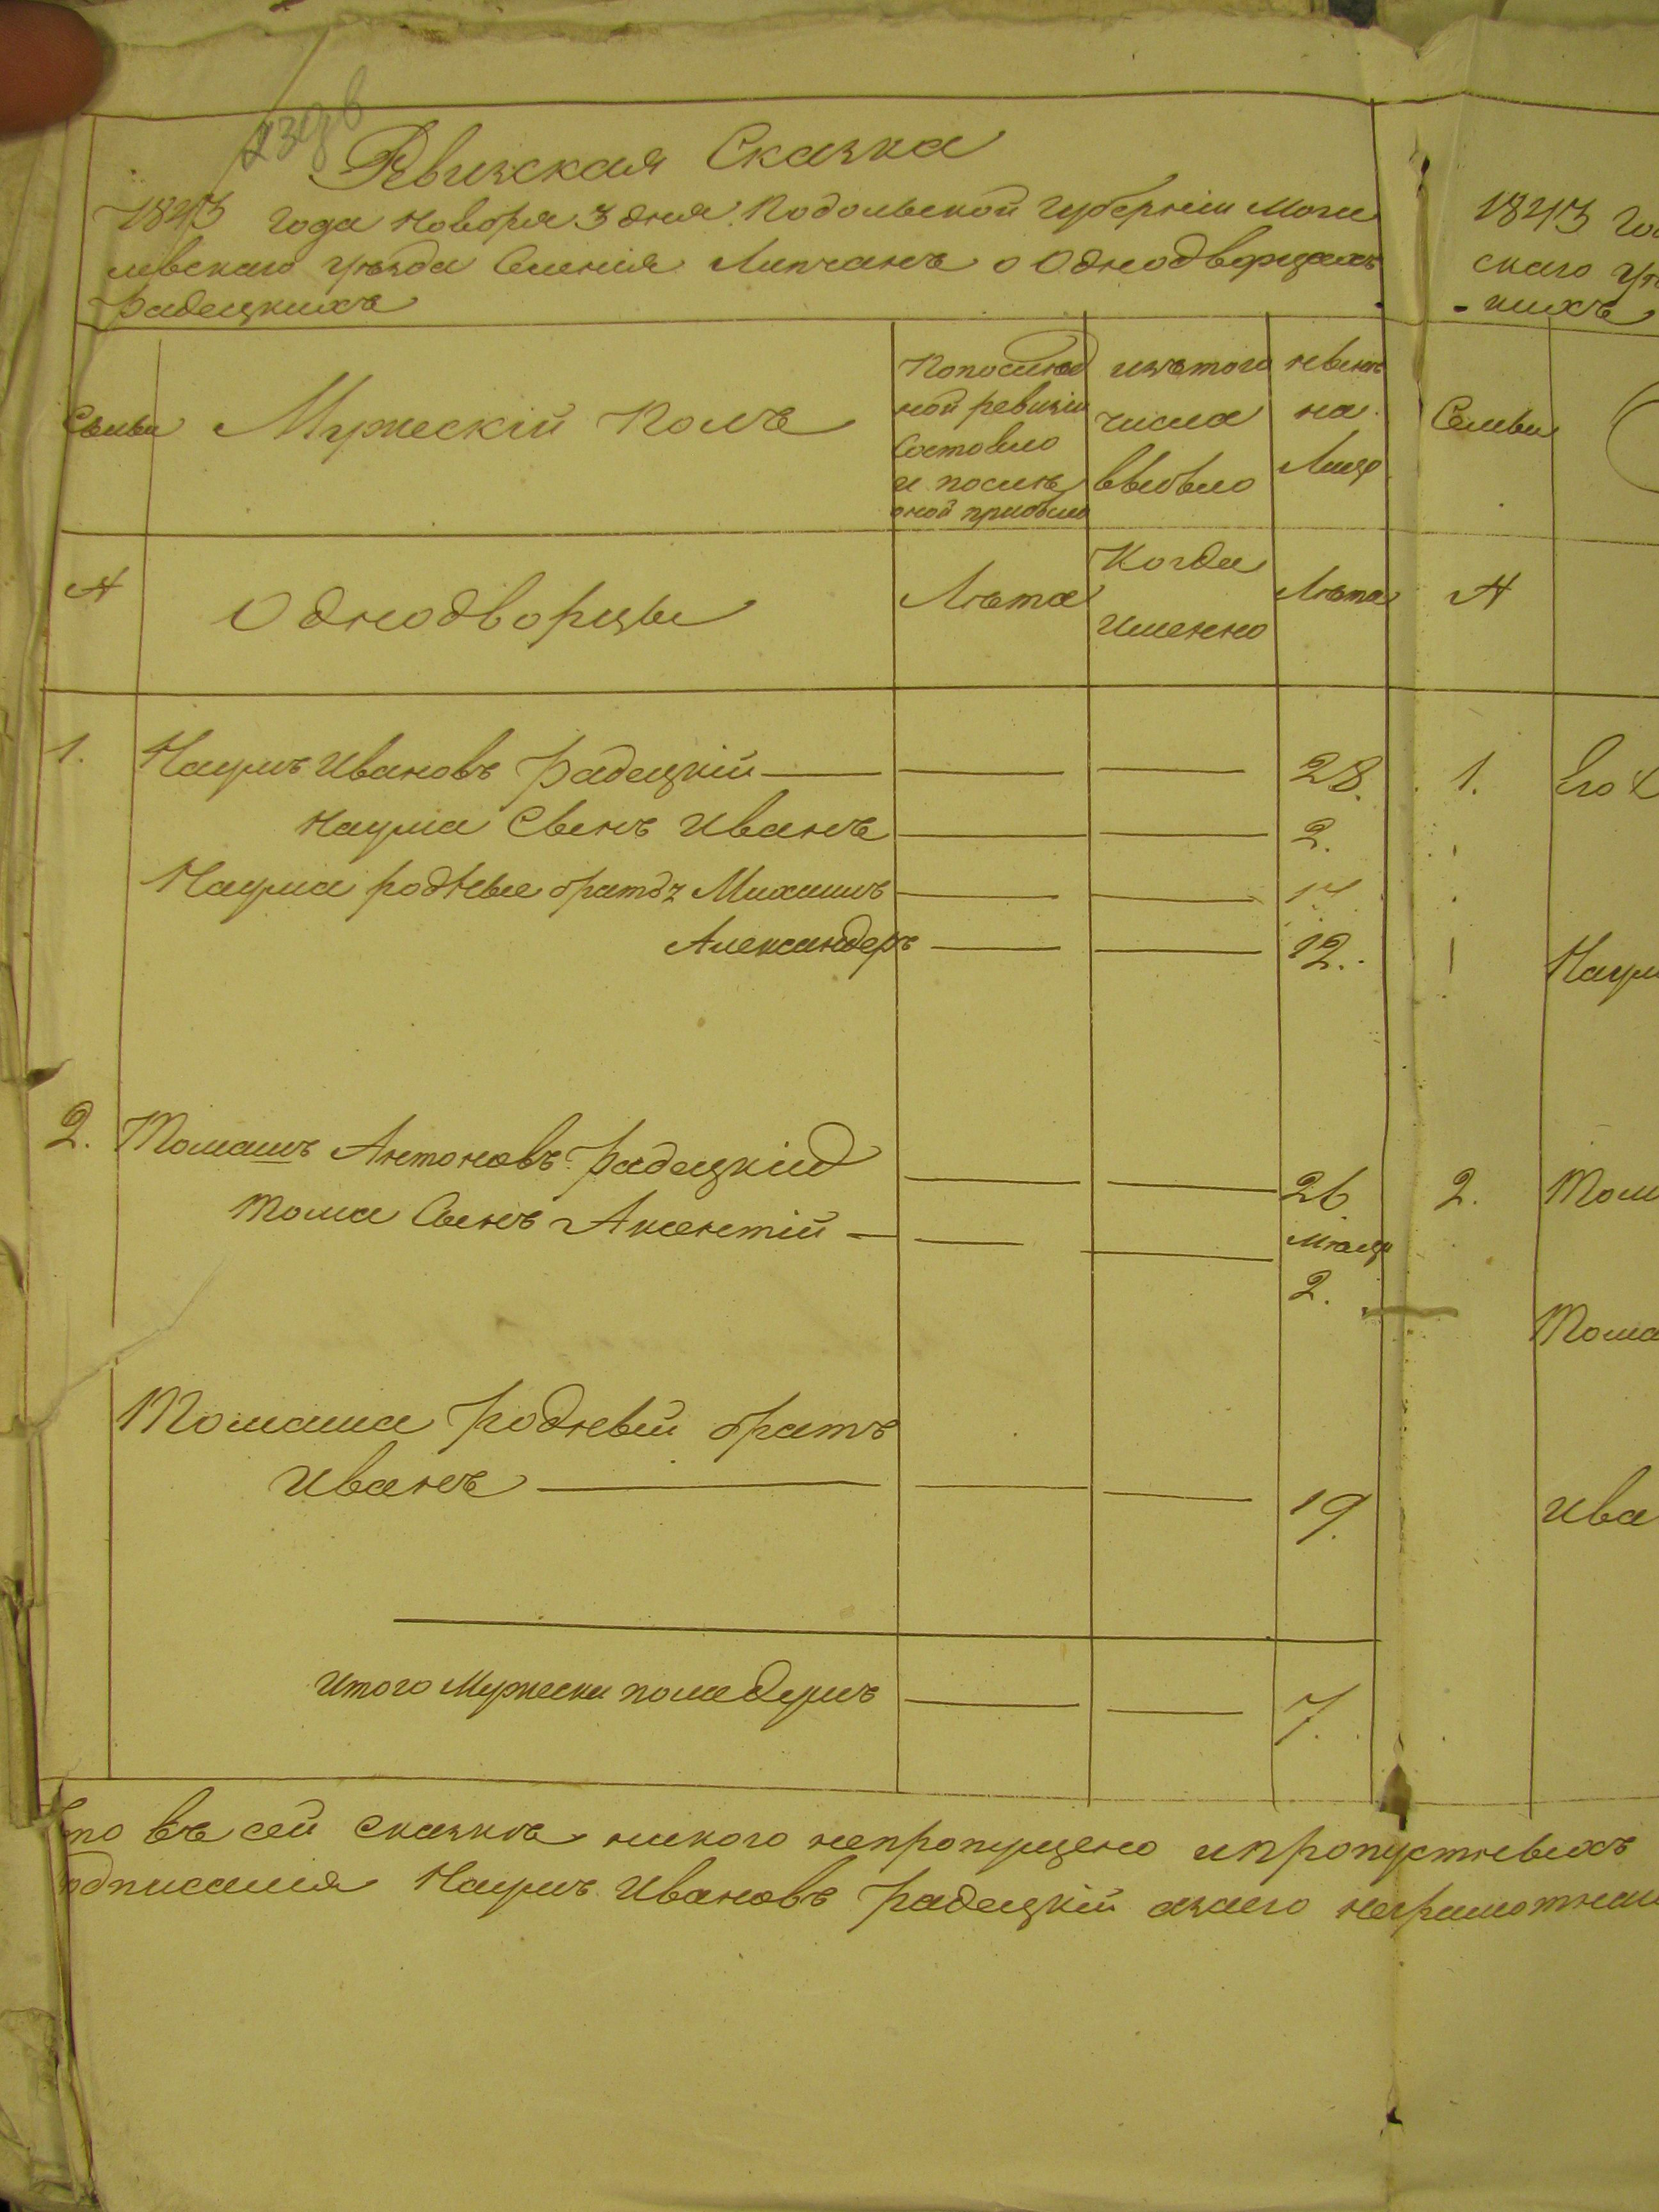 Ревизская Сказка
1843 года Ноября 3 дня Подольской Губерніи Моги
левскаго уѣзда Селенія Липчанъ о Однодворцахъ
Радецкихъ
Семьи
Мужескій Полъ
Попослѣд
ней ревизіи
Состояло
и послѣ
оной прибыло
изътого
числа
выбыло
нынѣ
на
Лицо
Однодворцы
Лѣта
Когда
Именно
Лѣта
1. Наумъ Ивановъ Радецкій 28.
Наума Сынъ Иванъ 2.
Наума родные братья Михаилъ 17.
Александеръ 12.
2. Томашъ Антоновъ Радецкій 26
Тома Сынъ Аксентій
2.
Томаша Родный братъ
Иванъ 19.
Итого Мужеска пола душъ 7.
что въ сей сказкѣ никого непропущено ипропустныхъ
Наумъ Ивановъ Радецкій азаего
1843
скаго
кихъ
Семьи
1. Его
Наум
2. Том
Тома
Ива